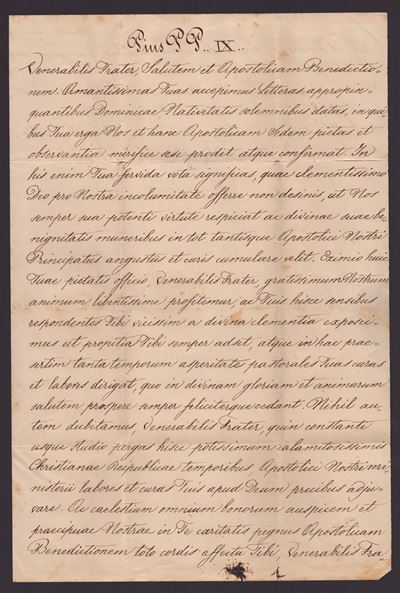 Pius P P.. IX..
Venerabilis Frater, Salutem et Apostolicam Benedictio-
nem. Amantissimas Tuas accepimus Litteras appropin-
quantibus Dominicae Nativitatis solemnibus datas, in qui-
bus Tua erga Nos et hanc Apostolicam Sedem pietas et
observantia mirifice sese prodit atque confirmat. In
his enim Tua fervida vota significas, quae clementissimo
Deo pro Nostra incolumitate offerre non desinis, ut Nos
semper sua potenti virtute respiciat ac divinae suae be
nignitatis muneribus in tot tantisque Apostolici Nostri
Principatus angustiis et curis cumulare velit. Eximio huic
Tuae pietatis officio, Venerabilis Frater, gratissimum Nostrum
animum libentissime profitemur, ac Tuis hisce sensibus
respondentes Tibi vicissim a divina clementia exposci-
mus ut propitia Tibi semper adsit, atque in hac prae-
sertim tanta temporum asperitate pastorales Tuas curas
et labores dirigat, quo in divinam gloriam et animarum
salutem prospere semper feliciterque cedant. Nihil au-
tem dubitamus, Venerabilis Frater, quin constanti
usque studio pergas hisce potissimum calamitosissimis
Christianae Reipublicae temporibus Apostolici Nostri mi
nisterii labores et curas Tuis apud Deum precibus adju-
vare. Ac caelestium omnium bonorum auspicem et
praecipuae Nostrae in Te caritatis pignus Apostolicam
Benedictionem toto cordis affectu Tibi, Venerabilis Fra-